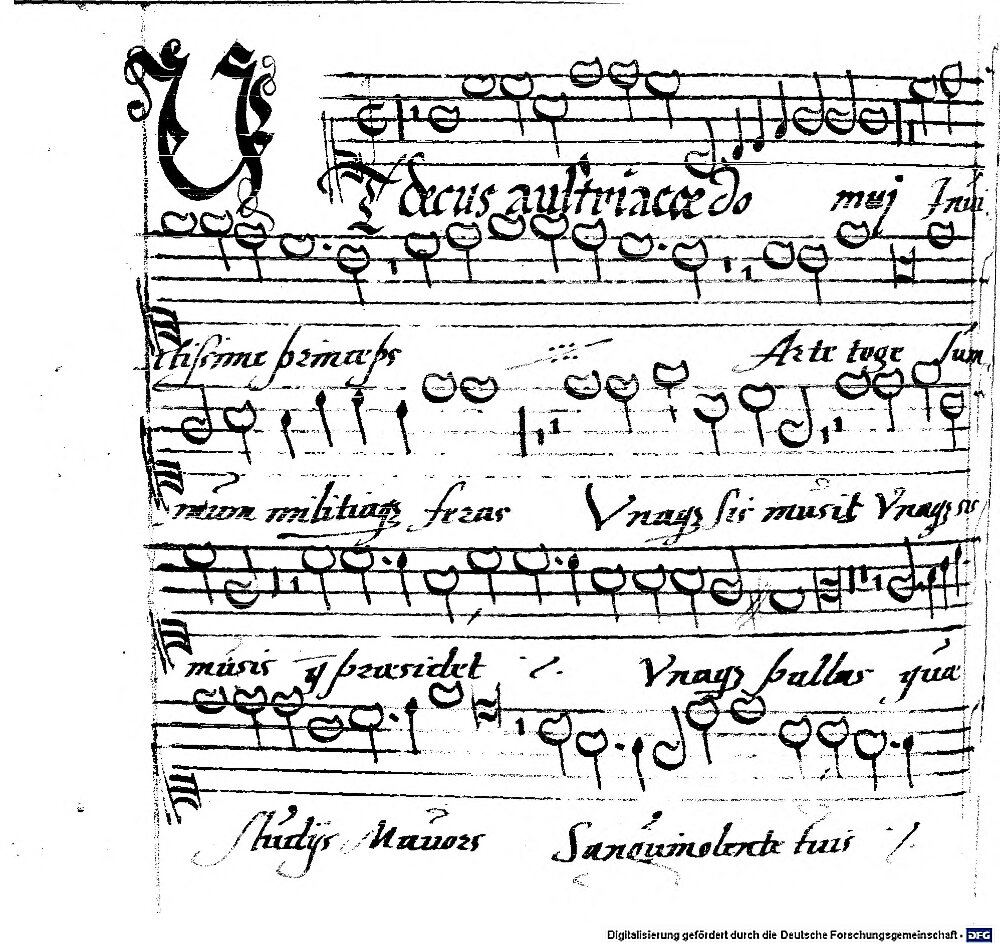 Vt decus austriacæ domuj Inui
ctissime princeps Arte toge sum
mum militiaqz feras Vnaqz sis musit Vnaqz sis
musis q præsidet Vnaqz pallas quæ
studijs Mauors Sanquinolente tuis
Digitalisierung gefördert durch die Deutsche Forschungsgemeinschaft - DFG